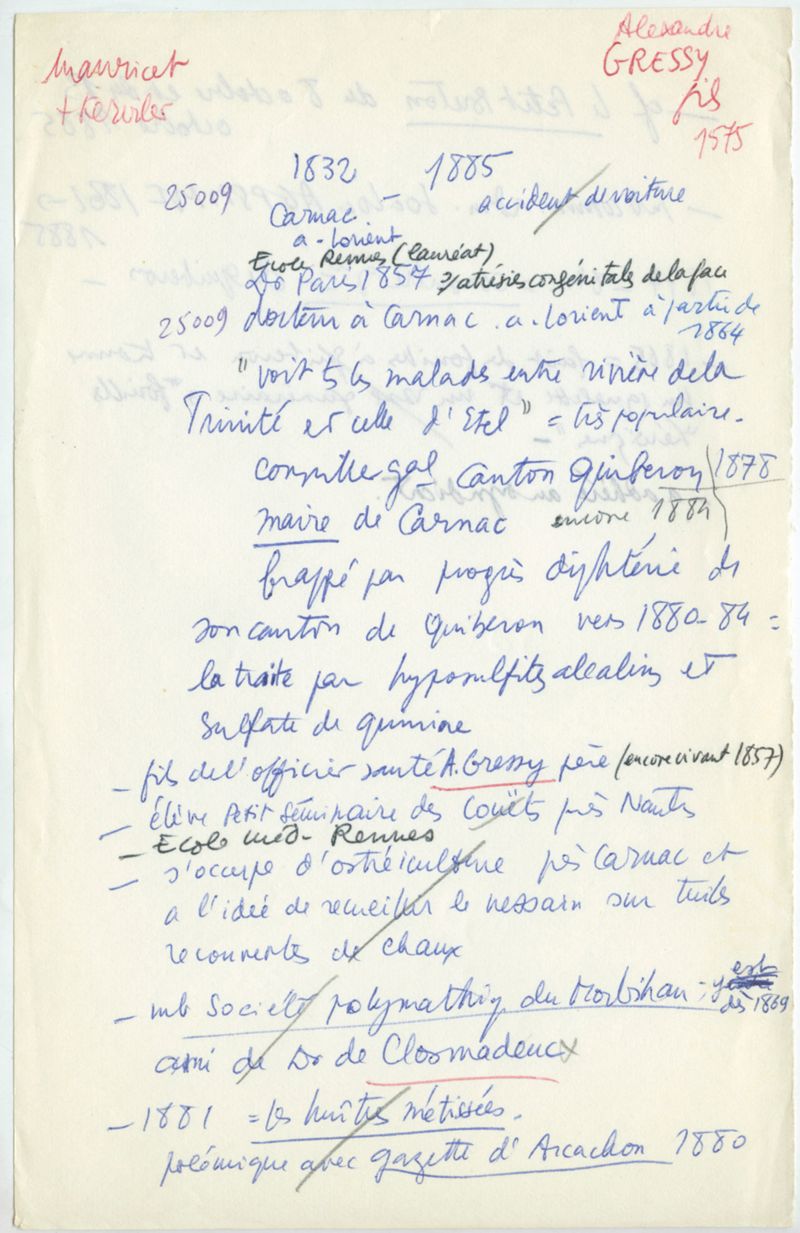 Mauricet
+ Kerviler
Alexandre
GRESSY
fils
1575
1832 — 1885
25009
Carnac. accident de voiture
a. Lorient
Ecole Rennes (lauréat)
Dr Paris 1857 s/atrésies congénitales de la face
25009 docteur à Carnac. a. Lorient à partir de
1864
"voit ts les malades entre rivière de la
Trinité et celle d'Etel" = très populaire.
conseiller gal Canton Quiberon 1878
maire de Carnac encore 1884
frappé par progrès diphtérie ds
son canton de Quiberon vers 1880-84 =
la traite par hyposulfites alcalins et
sulfate de quinine
— fils de l'officier santé A. Gressy père (encore vivant 1857)
— élève Petit Séminaire des Couëts près Nantes
— Ecole méd. Rennes
— s'occupe d'ostréiculture près Carnac et
a l'idée de recueillir le naissain sur tuiles
recouvertes de chaux
— mb Société polymathiq du Morbihan; y est
dès 1869
ami de Dr de Closmadeuc x
— 1881 = les huîtres métissées.
polémique avec gazette d'Arcachon 1880